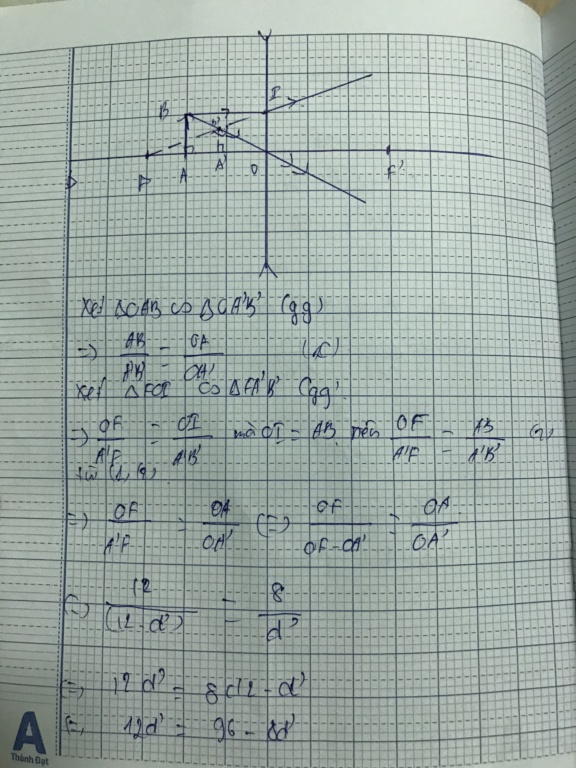 I
B
B'
F
A
A'
O
F'
Xét ΔOAB ∽ ΔOA'B' (gg)
=> AB/A'B' = OA/OA' (1)
Xét ΔFOI ∽ ΔFA'B' (gg)
=> OF/A'F = OI/A'B' mà OI = AB nên OF/A'F = AB/A'B' (2)
từ (1, 2)
=> OF/A'F = OA/OA' <=> OF/OF-OA' = OA/OA'
<=> 12/(12-d') = 8/d'
=> 12d' = 8(12-d'
<=> 12d' = 96 - 8d'
A
Thành Đạt